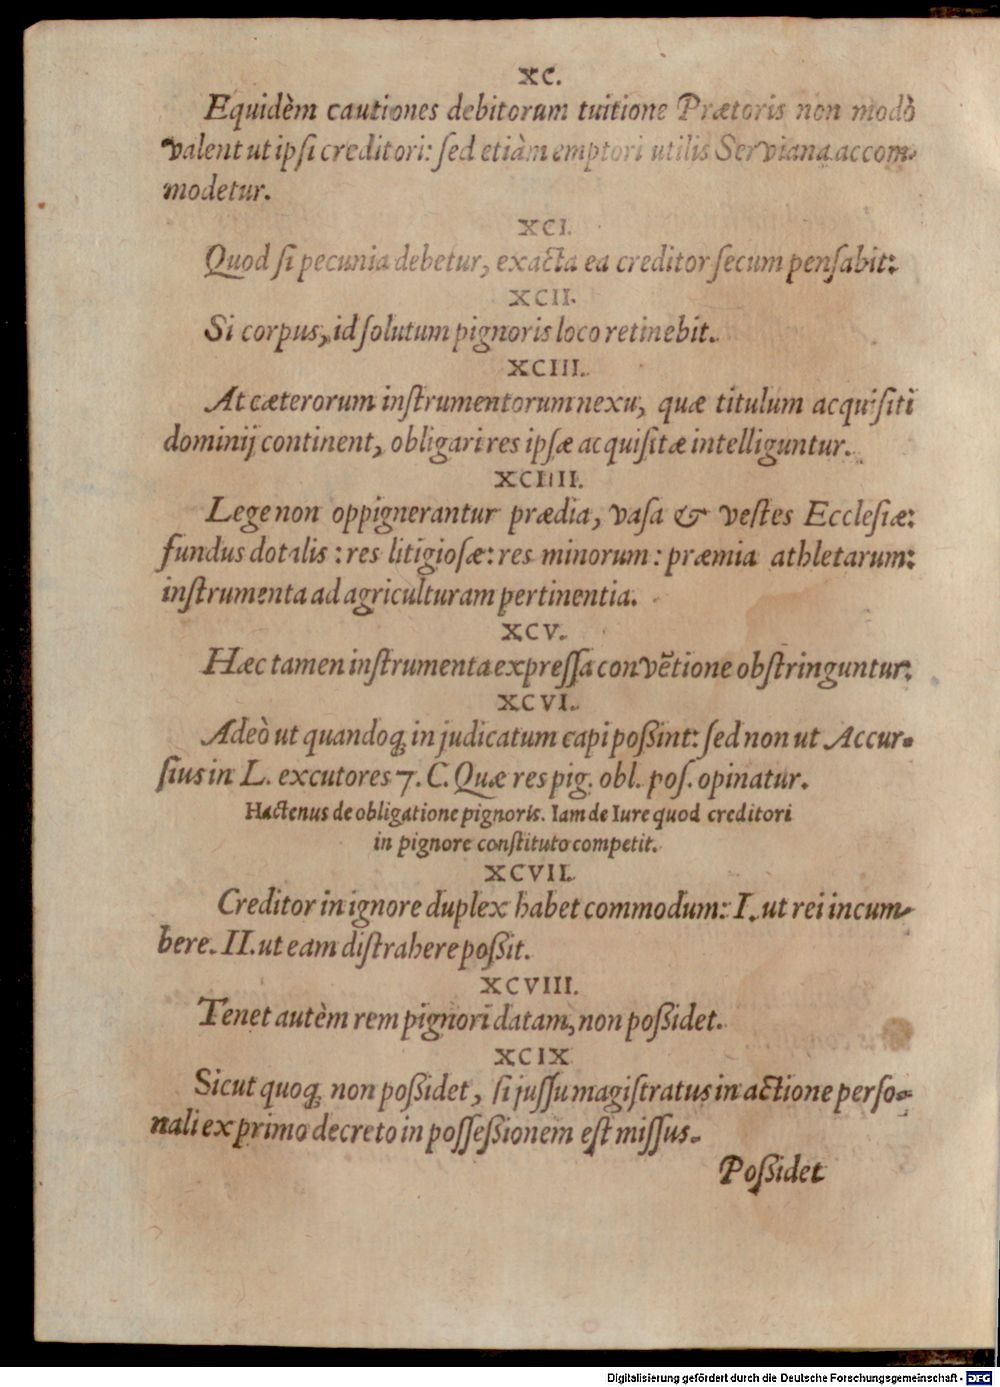 XC.
Equidèm cautiones debitorum tuitione Prætoris non modò
valent ut ipsi creditori: sed etiàm emptori utilis Serviana accom-
modetur.
XCI.
Quod si pecunia debetur, exacta ea creditor secum pensabit:
XCII.
Si corpus, id solutum pignoris loco retinebit.
XCIII.
At cæterorum instrumentorum nexu, quæ titulum acquisiti
dominij continent, obligari res ipsæ acquisitæ intelliguntur.
XCIIII.
Lege non oppignerantur prædia, vasa & vestes Ecclesiæ:
fundus dotalis: res litigiosæ: res minorum: præmia athletarum:
instrumenta ad agriculturam pertinentia.
XCV.
Hæc tamen instrumenta expressa convẽtione obstringuntur:
XCVI.
Adeò ut quandoq; in judicatum capi poßint: sed non ut Accur-
sius in L. excutores 7. C. Quæ res pig. obl. pos. opinatur.
Hactenus de obligatione pignoris. Iam de Iure quod creditori
in pignore constituto competit.
XCVII.
Creditor in ignore duplex habet commodum: I. ut rei incum-
bere. II. ut eam distrahere poßit.
XCVIII.
Tenet autèm rem pignori datam, non poßidet.
XCIX
Sicut quoq; non poßidet, si jussu magistratus in actione perso-
nali ex primo decreto in posseßionem est missus.
Poßidet
Digitalisierung gefördert durch die Deutsche Forschungsgemeinschaft - DFG